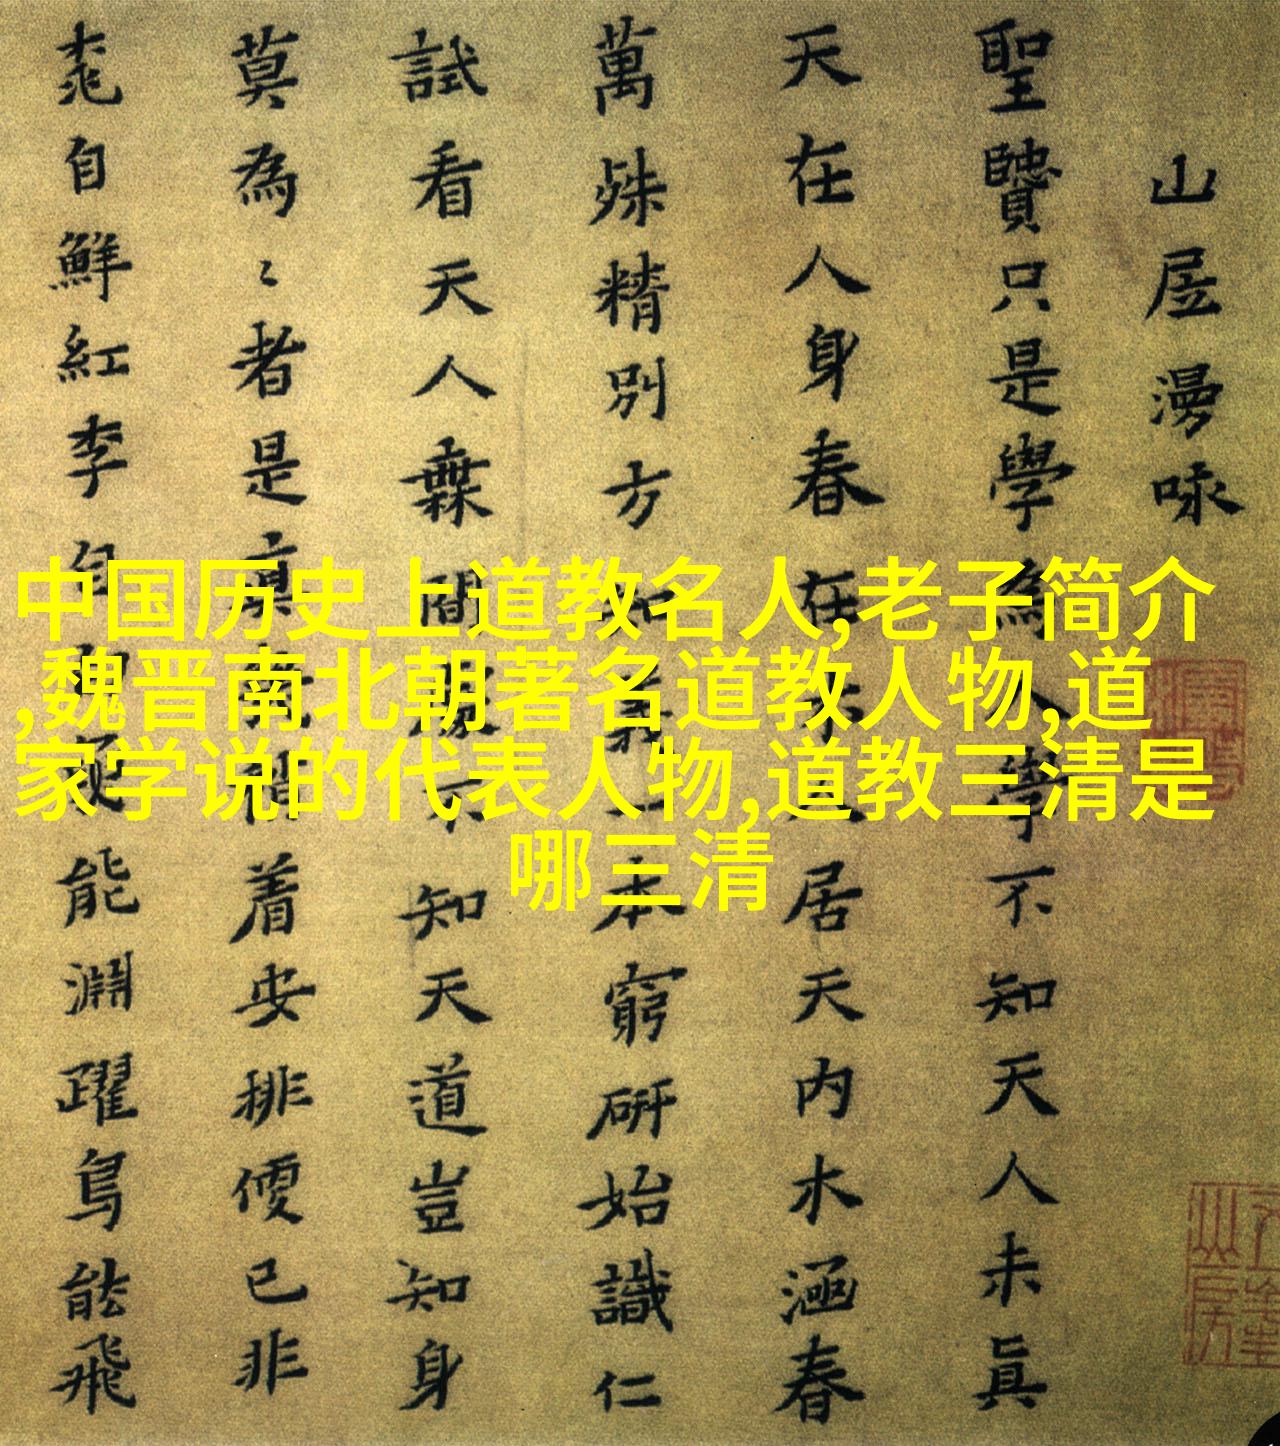 山居漫咏
聖贒只是學為人學不知天人未眞
天在人身春在木人居天内木涵春
萬殊精別方知一本窮硏始識仁
試看天人橆間不知天道豈知身
莫為〻者是真着安排便已非
桃自鮮紅李自白能淵躍鳥能飛
中国历史上道教名人,老子简介
,魏晋南北朝著名道教人物,道
家学说的代表人物,道教三清是
哪三清